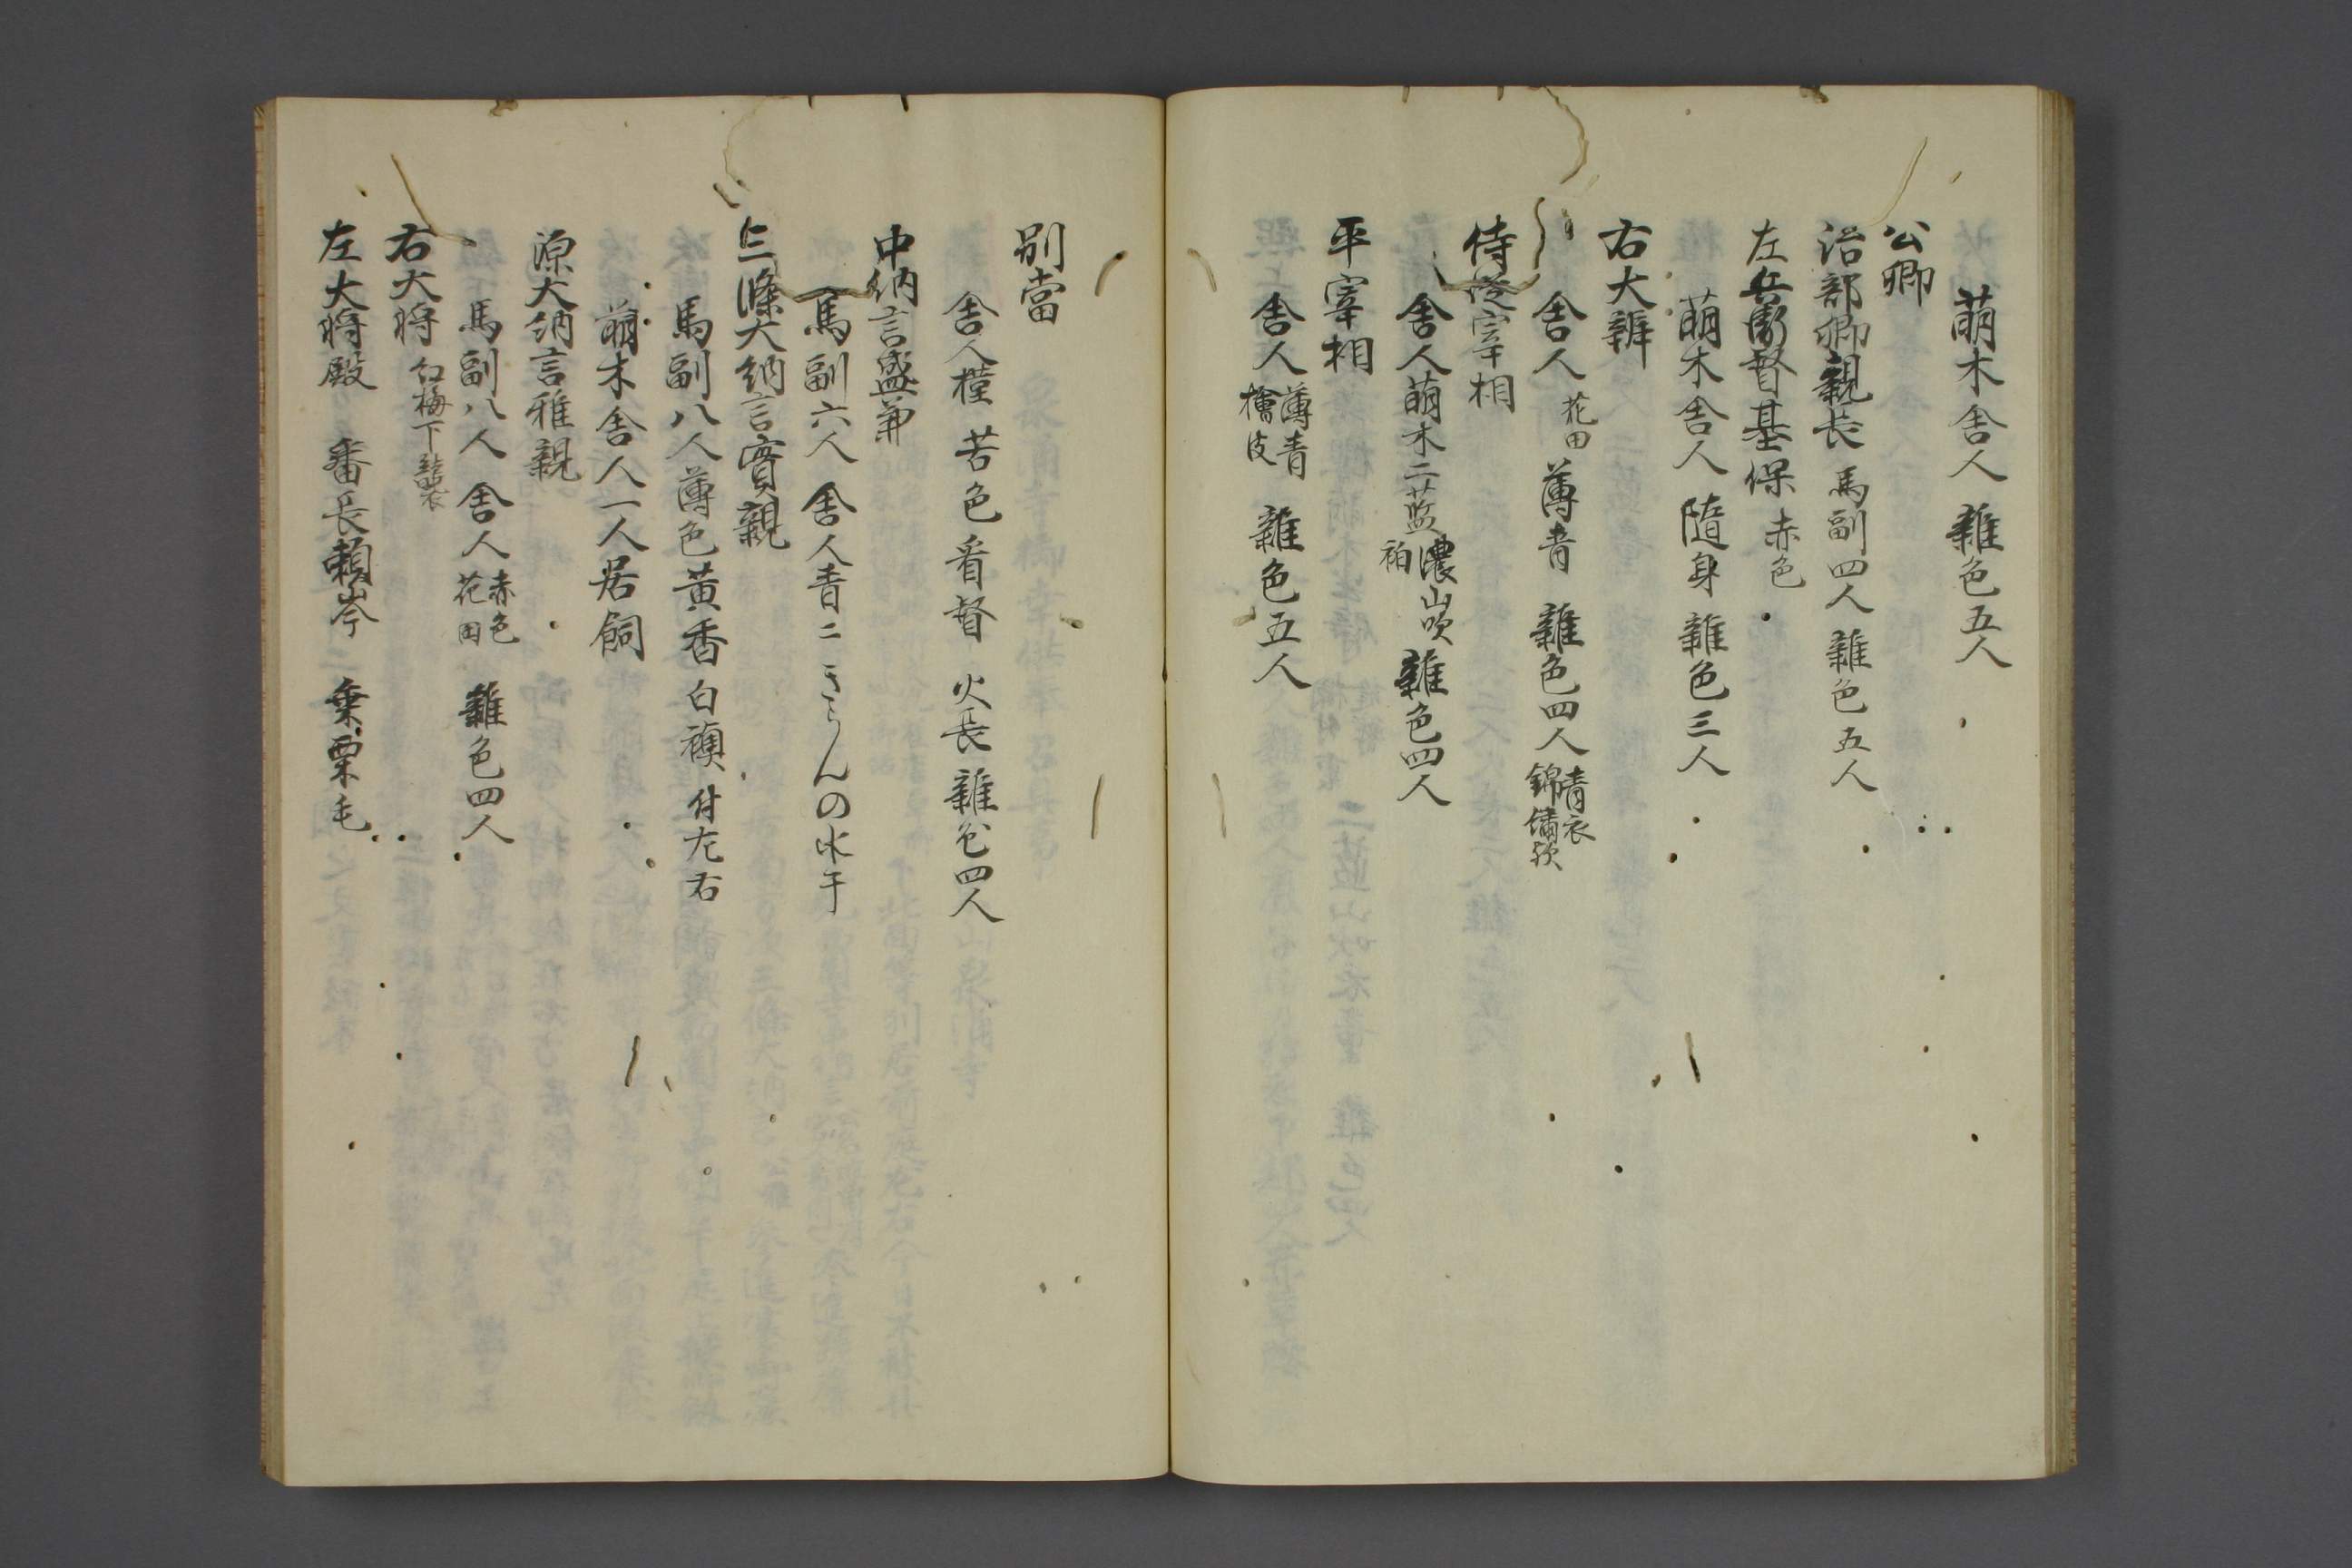 萌木舎人 雑色五人
公卿
治部卿親長 馬副四人 雑色五人
左兵衛督基保 赤色
萌木舎人 随身 雑色三人
右大辨
舎人 花田 薄青 雑色四人 青衣 錦繍
侍従宰相
舎人 萌木 二藍 濃山吹 袙 雑色四人
平宰相
舎人 薄青 檜皮 雑色五人
別當
舎人 苦色 看督 火長 雑色四人
中納言盛兼
馬副六人 舎人青ニ きらんの水干
三條大納言實親
馬副八人 薄色 黄香 白襖 付左右
萌木舎人一人 居飼
源大納言雅親
馬副八人 舎人 赤色 花田 雑色四人
右大将 紅梅下襲
左大将殿 番長頼岑 乗栗毛